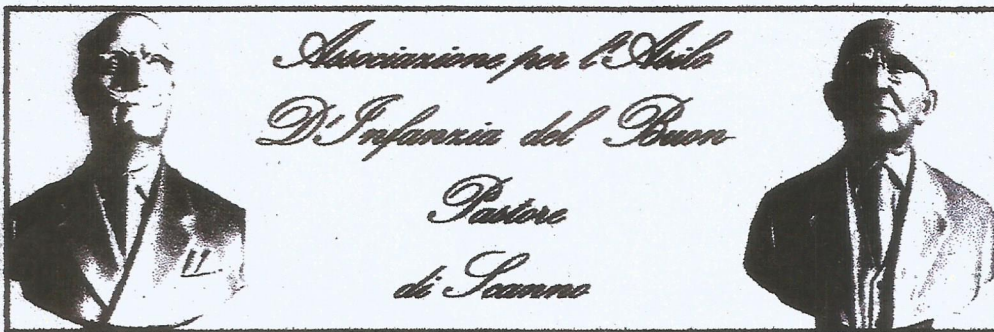 Associazione per l'Asilo
D'Infanzia del Buon
Pastore
di Scanno